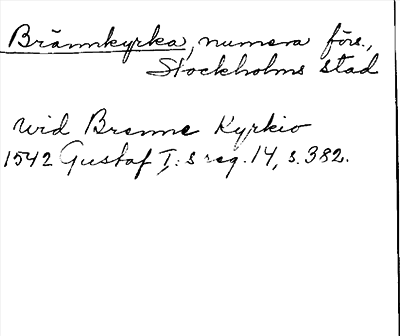 Brännkyrka, numera förs.,
Stockholms stad
wid Brenne Kyrkio
1542 Gustaf I:s reg. 14, s. 382.